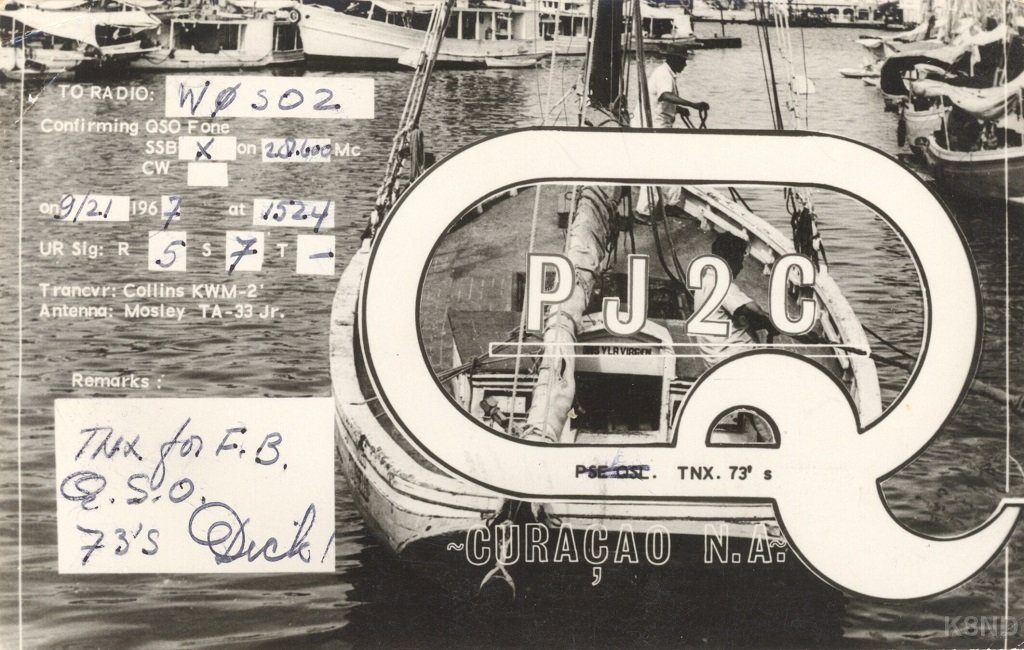 TO RADIO: WØSO2
Confirming QSO Fone
SSB X on 28.600 Mc
CW
on 9/21 1967 at 1524
UR Sig: R 5 S 7 T -
Trancvr: Collins KWM-2'
Antenna: Mosley TA-33 Jr.
Remarks:
Tnx for F.B.
Q.S.O.
73's Dick!
PJ2C
PSE QSL. TNX. 73' s
~CURAÇAO N.A.~
K8ND